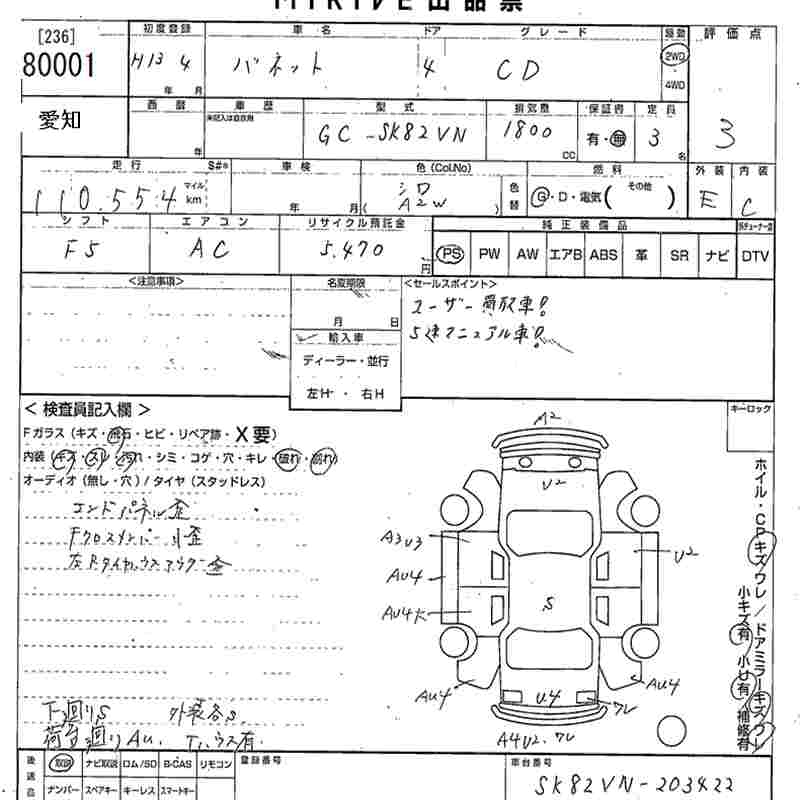 MIRIVE出品票
[236]
80001
愛知
初度登録
H13 4
年 月
車名
バネット
ドア
4
グレード
CD
駆動
2WD
4WD
評価点
3
西暦
年
車歴
未記入は自家用
型式
GC-SK82VN
排気量
1800
CC
保証書
有・無
定員
3
名
走行
110.554
S#※
マイル
km
車検
年 月
色(Col.No)
シロ
( A2W )
色替
燃料
G・D・電気( その他 )
外装
E
内装
C
シフト
F5
エアコン
AC
リサイクル預託金
5.470
円
純正装備品
PS PW AW エアB ABS 革 SR ナビ DTV
<注意事項>
名変期限
月 日
輸入車
ディーラー・並行
左H・右H
<セールスポイント>
ユーザー買取車!
5速マニュアル車!
<検査員記入欄>
Fガラス(キズ・飛石・ヒビ・リペア跡・X要)
内装(キズ・スレ・汚れ・シミ・コゲ・穴・キレ・破れ・割れ)
オーディオ(無し・穴)/タイヤ(スタッドレス)
エンドパネル歪
Fクロスメンバー小歪
左Rタイヤハウスアウター歪
下廻りS 外装各S
荷台廻りAU
キーロック
A2
U2
A3U3
U2
AU4
AU4
S
AU4
U4
ワレ
AU4
A4U2.ワレ
ホイル・CPキズワレ/ドアミラーキズワレ
小キズ有 小U有 補修有
後送品
取説 ナビ取説 ロム/SD B-CAS リモコン
ナンバー スペアキー キーレス スマートキー
登録番号
車台番号
SK82VN-203422